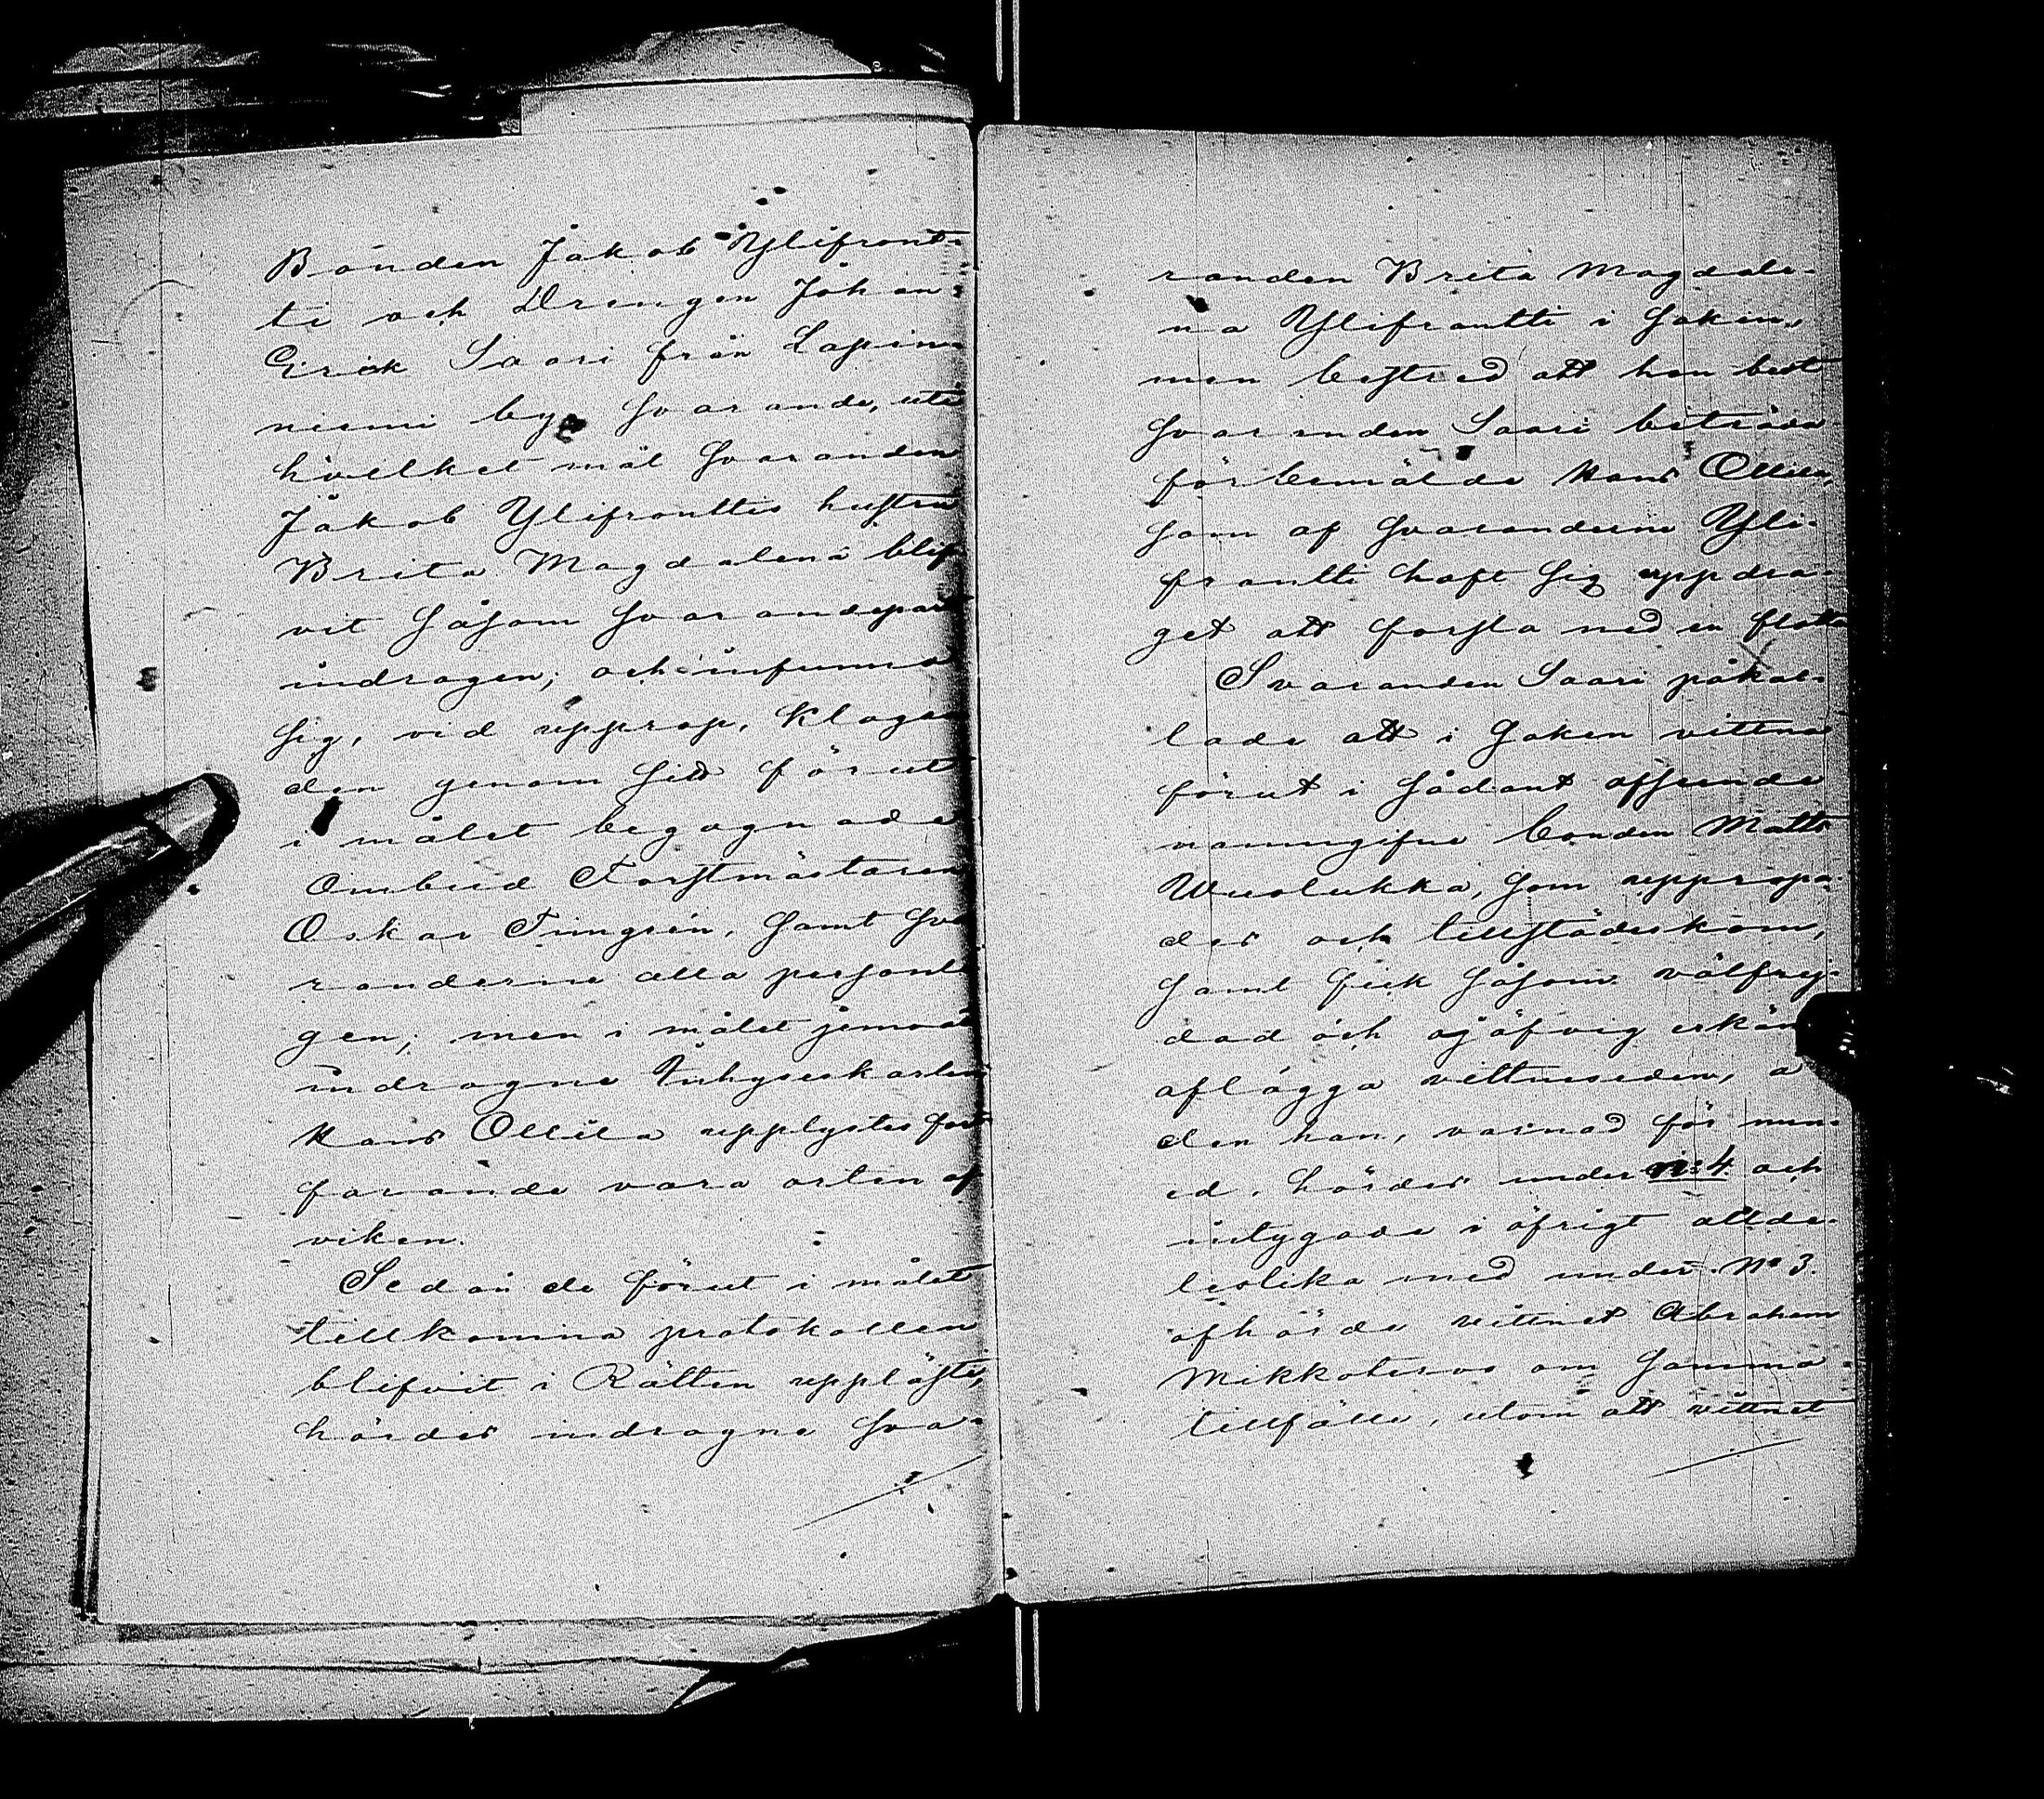 Bonden Jakob Ylifront-
ti och Drengen Johan
Erik Saari från Lapin-
niemi by Svarande, uti
hvilket mål Svaranden
Jakob Ylifronttis hustru
Brita Magdalena blif-
vit såsom Svarandepart
indragen; och infunno
sig, vid upprop, Klagan-
den genom sitt förut
i målet begagnade
Ombud Forstmästaren
Oskar Timgrén, samt Sva-
randerne alla personli-
gen; men i målet jemväl
indragne Inhyseskarlen
Hans Ollila upplystes fort-
farande vara orten af-
viken.
Sedan de förut i målet
tillkomna protokollen
blifvit i Rätten uppläste,
hördes indragne Sva-
randen Brita Magdale-
na Ylifrontti i saken,
men bestred att hon bedt
Svaranden Saari biträda
förbemälde Hans Ollila,
som af Svaranderne Yli-
frontti haft sig uppdra-
get att forsla ned en flotta
Svaranden Saari påkal-
lade att i saken vittna
förut i sådant afseende
namngifne bonden Matts
Wuolukka, som uppropa-
des och tillstädeskom,
samt fick såsom välfrej-
dad och ojäfvig erkänd
aflägga vittneseden, å
den han, varnad för men-
ed, hördes under No 4 och
intygade i öfrigt allde-
leslika med under No 3.
afhörde vittnet Abraham
Mikkotervo om samma
tillfälle, utom att vittnet